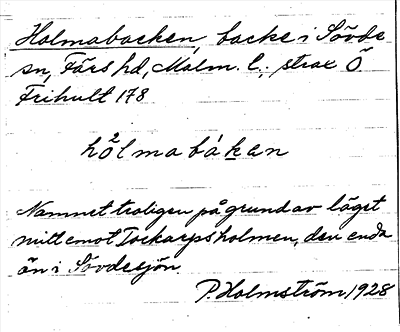 Holmabacken, backe i Sövde
sn, Färs hd, Malm. l.; strax Ö
Frihult 178
hòlmabákan
Namnet troligen på grund av läget
mitt emot Tockarpsholmen, den enda
ön i Sövdesjön
P. Holmström 1928